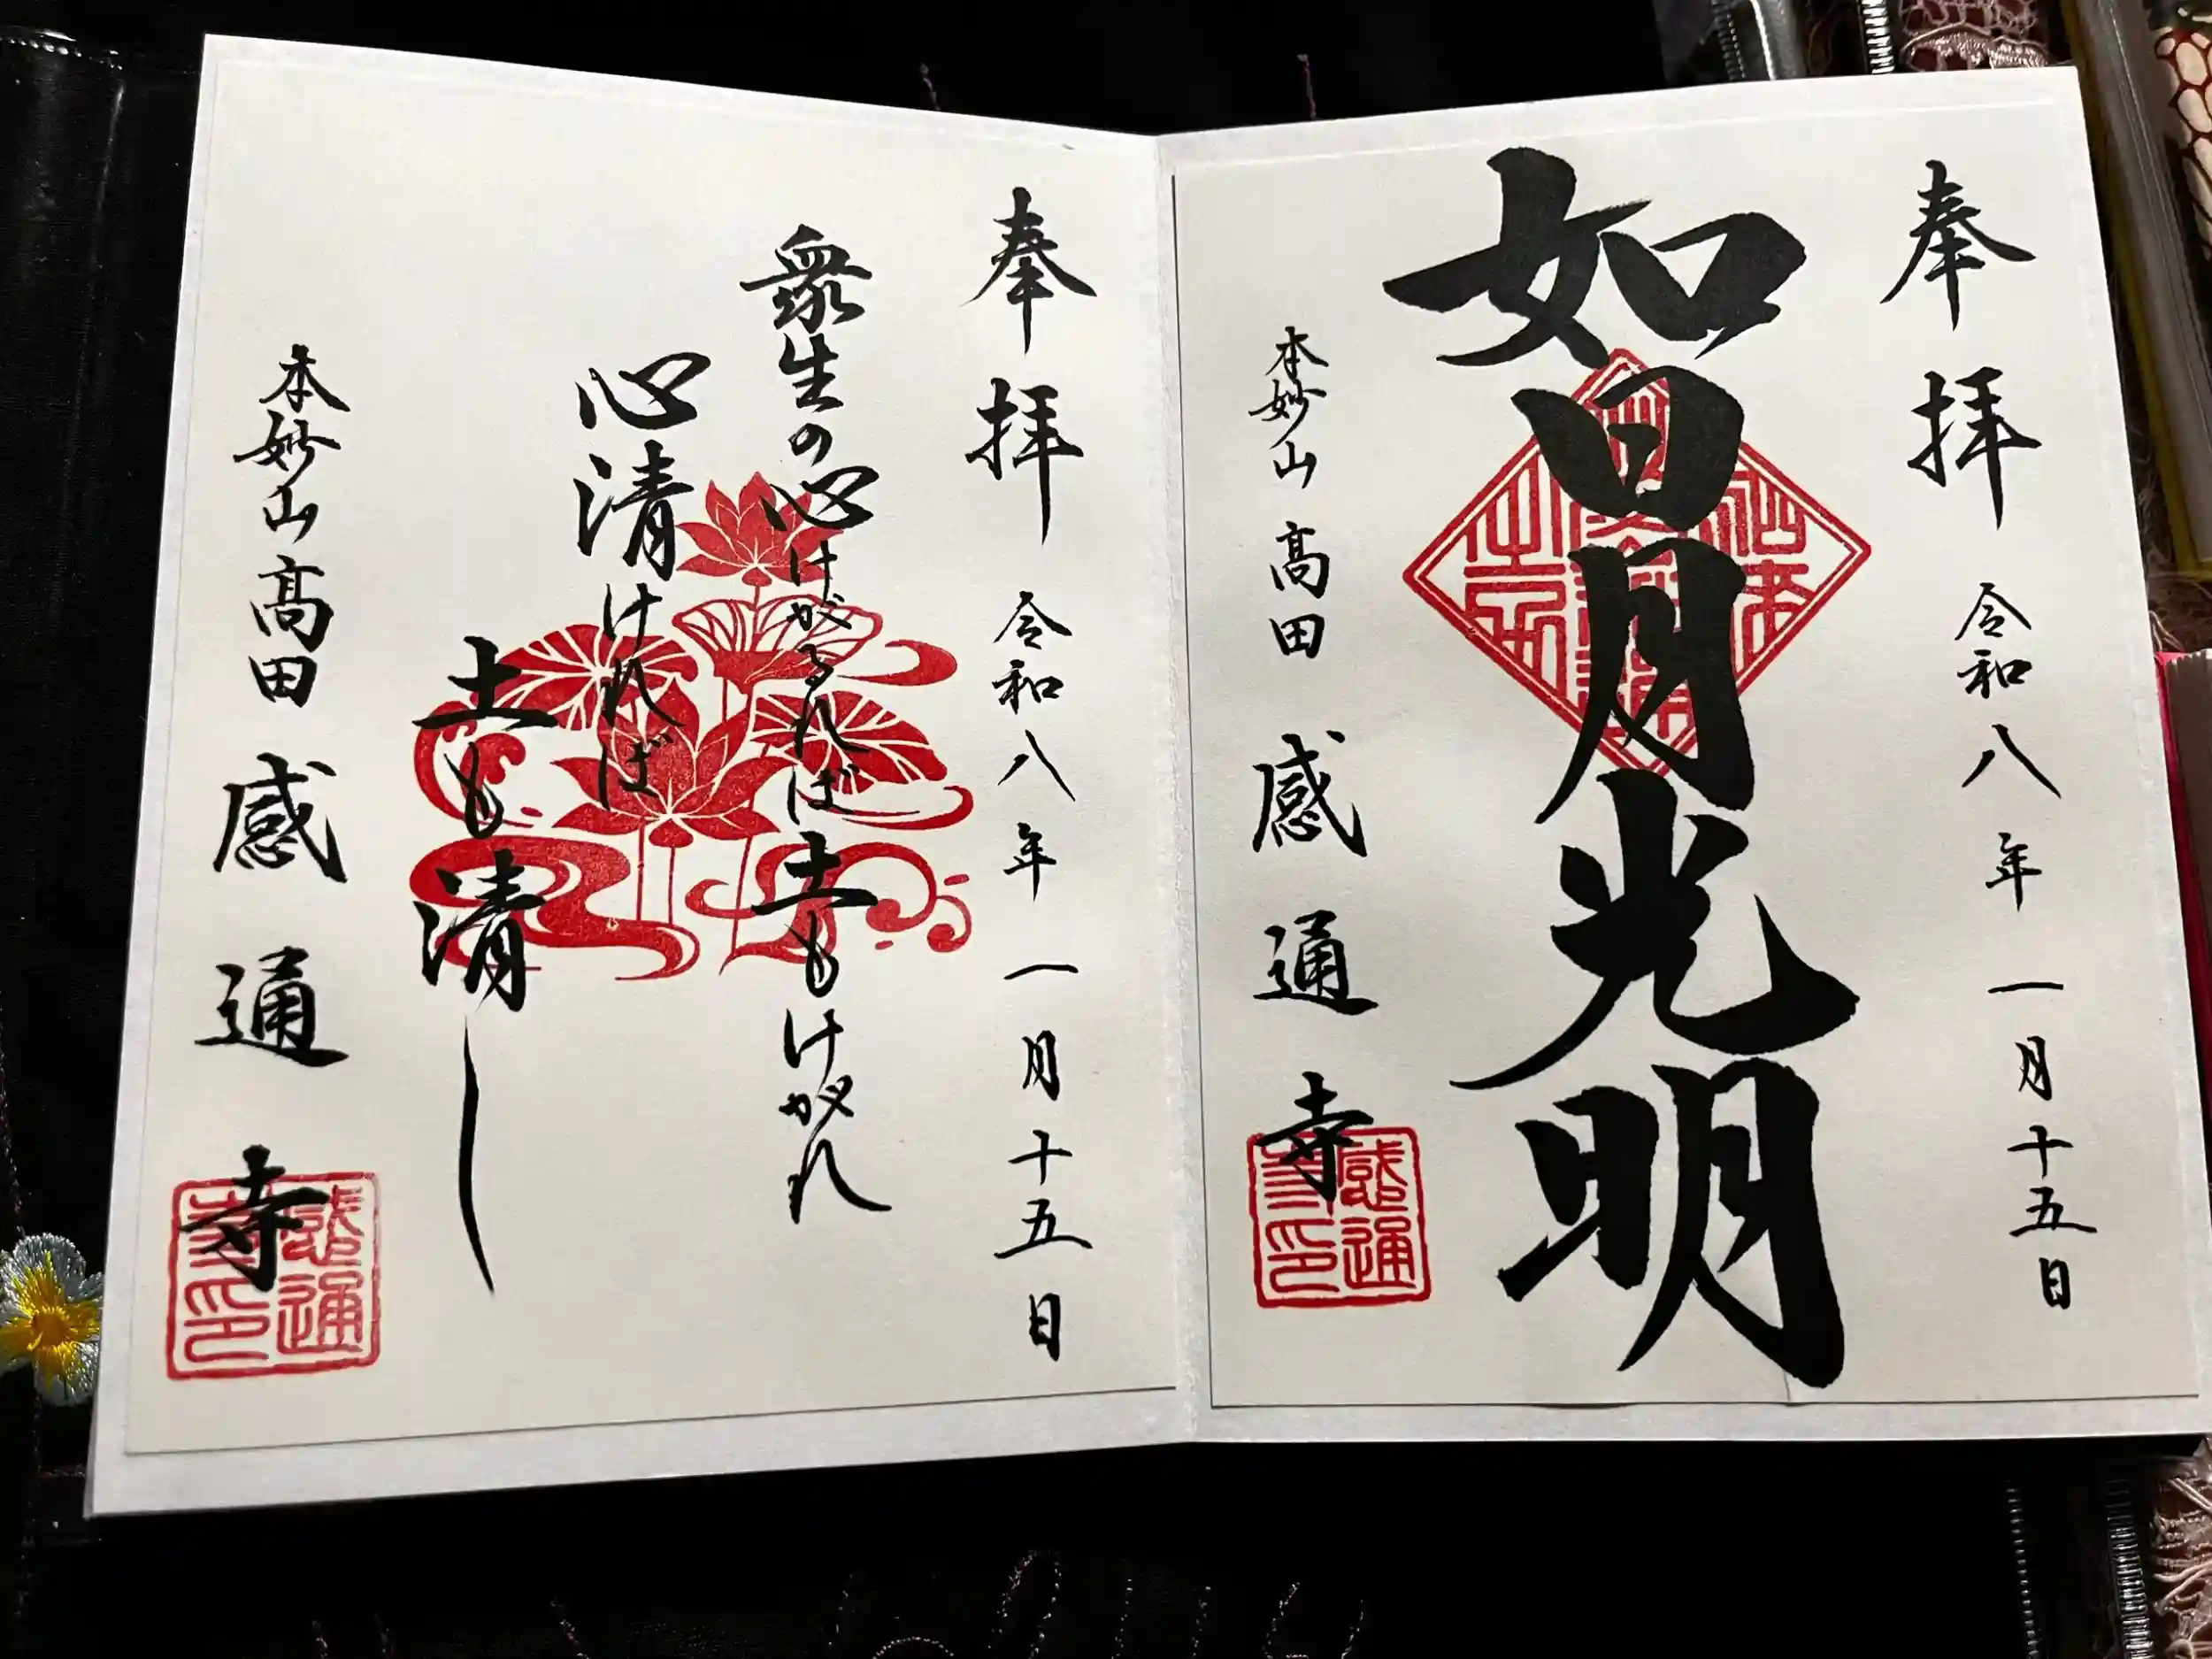 奉拝 令和八年一月十五日
如日月光明
本妙山 高田 感通寺
感通寺印
奉拝 令和八年一月十五日
衆生の心けがるれば土もけがれ
心清ければ
土も清し
本妙山高田 感通寺
感通寺印